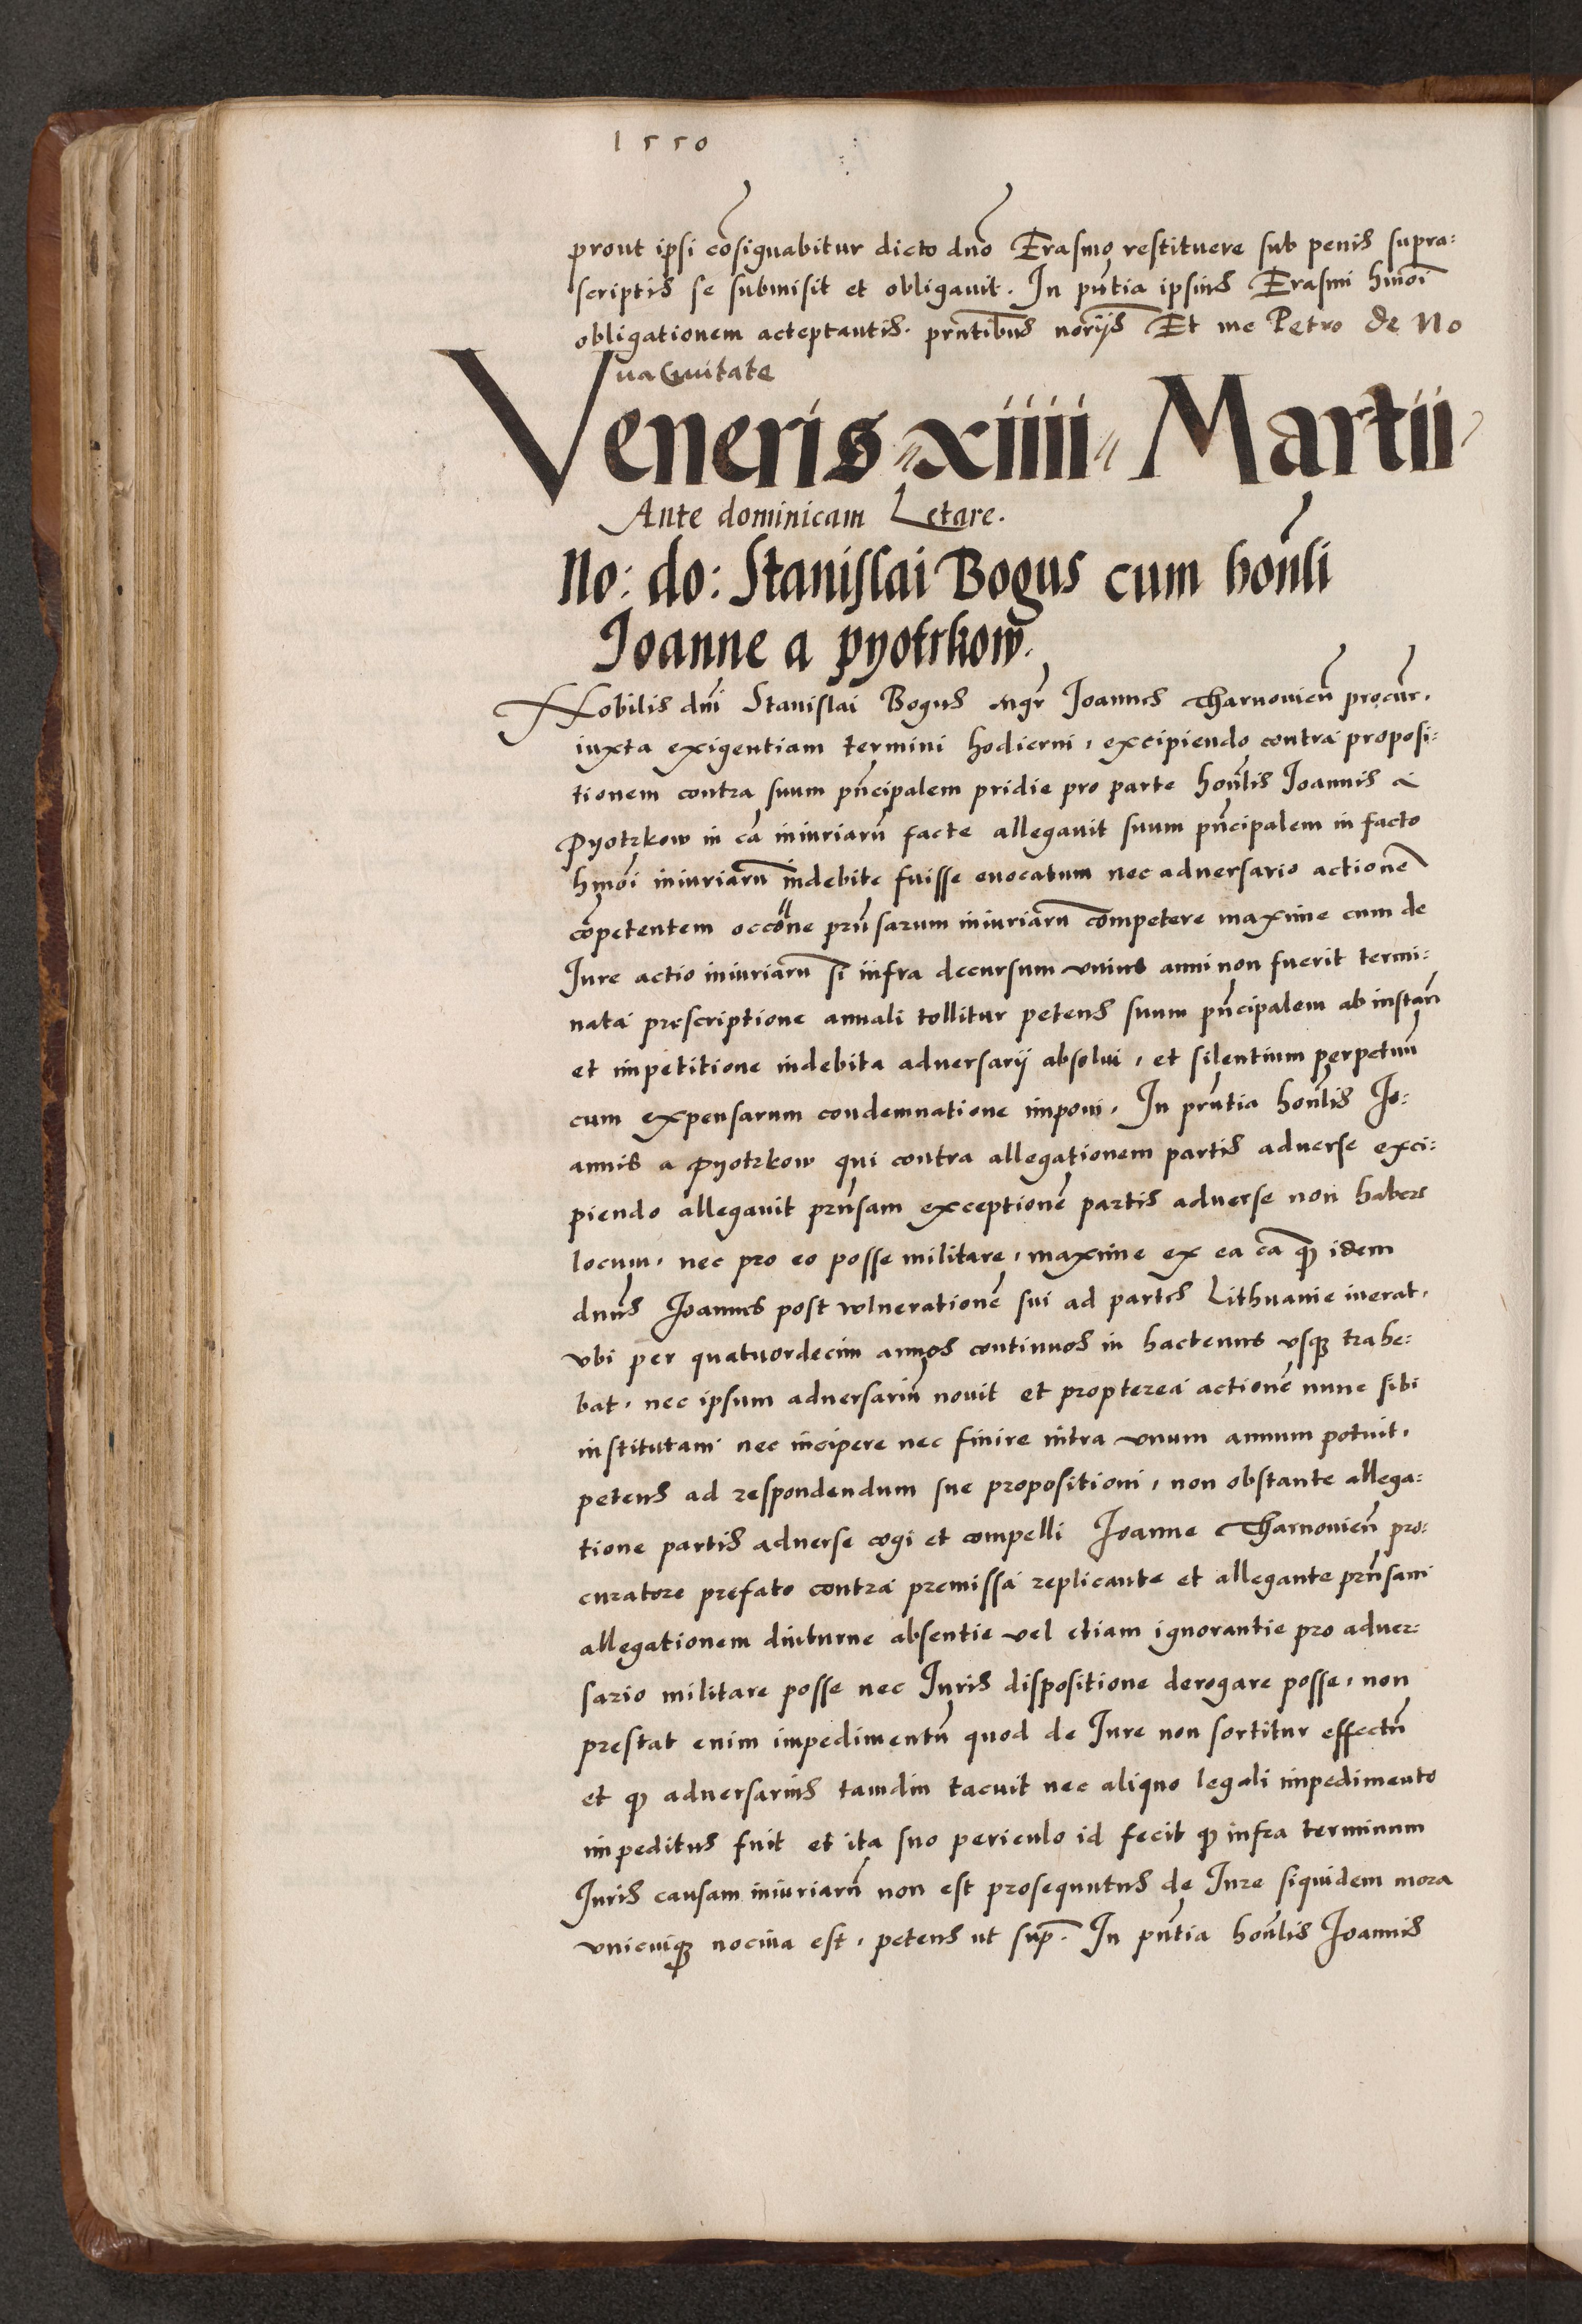 1550
prout ipsi cōsignabitur dicto dnō Erasmo restituere sub penis supra:
scriptis se submisit et obligauit. In pn̄tia ipsius Erasmi hmōi
obligationem acceptantis. prn̄tibus noriis Et me Petro de No
ua Ciuitate
Veneris xiiii Martii
Ante dominicam Letare.
No: do: Stanislai Bogus cum hon̄li
Joanne a pyotrkow.
Nobilis dnī Stanislai Bogus mgr̄ Joannes Tharnouien̄ procūr.
iuxta exigentiam termini hodierni, excipiendo contra proposi:
tionem contra suum pn̄cipalem pridie pro parte hon̄lis Joannis a
Pyotrkow in cā iniuriarū facte allegauit suum pn̄cipalem in facto
hmōi iniuriarū indebite fuisse euocatum nec aduersario actionē
cōpetentem occōne prn̄sarum iniuriarū competere maxime cum de
Jure actio iniuriarū si infra decursum vnius anni non fuerit termi:
nata prescriptione annali tollitur petens suum pn̄cipalem ab instan̄
et impetitione indebita aduersarij absolui, et silentium perpetuū
cum expensarum condemnatione imponi. In prn̄tia hon̄lis Jo:
annis a Pyotrkow qui contra allegationem partis aduerse exci:
piendo allegauit prn̄sam exceptionē partis aduerse non habere
locum, nec pro eo posse militare, maxime ex ea cā qꝫ idem
dnūs Joannes post vulnerationē sui ad partes Lithuanie iuerat,
vbi per quatuordecim annos continuos in hactenus vsqꝫ trahe:
bat, nec ipsum aduersariū nouit et propterea actionē nunc sibi
institutam nec incipere nec finire intra vnum annum potuit,
petens ad respondendum sue propositioni, non obstante allega:
tione partis aduerse cogi et compelli Joanne Tharnouien̄ pro:
curatore prefato contra premissa replicante et allegante prn̄sam
allegationem diuturne absentie vel etiam ignorantie pro aduer:
sario militare posse nec Juris dispositione derogare posse, non
prestat enim impedimentū quod de Jure non sortitur effectū
et qꝫ aduersarius tamdiu tacuit nec aliquo legali impedimento
impeditus fuit et ita suo periculo id fecit qꝫ infra terminum
Juris causam iniuriarū non est prosequutus de Jure siquidem mora
vnicuiqꝫ nociua est, petens ut sup̄. In pn̄tia hon̄lis Joannis